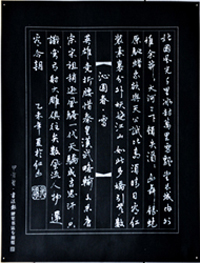 北國風光千里冰封萬里雪飄望長城内外
惟餘莽莽大河上下頓失滔滔山舞銀蛇
原馳蠟象欲與天公試比高須晴日看紅
裝素裹分外妖嬈江山如此多嬌引無數
【沁園春·雪】
英雄競折腰惜秦皇漢武略輸文采唐
宗宋祖稍遜風騷一代天驕成吉思汗只
識彎弓射大雕俱往矣數風流人物還
看今朝
乙未年夏